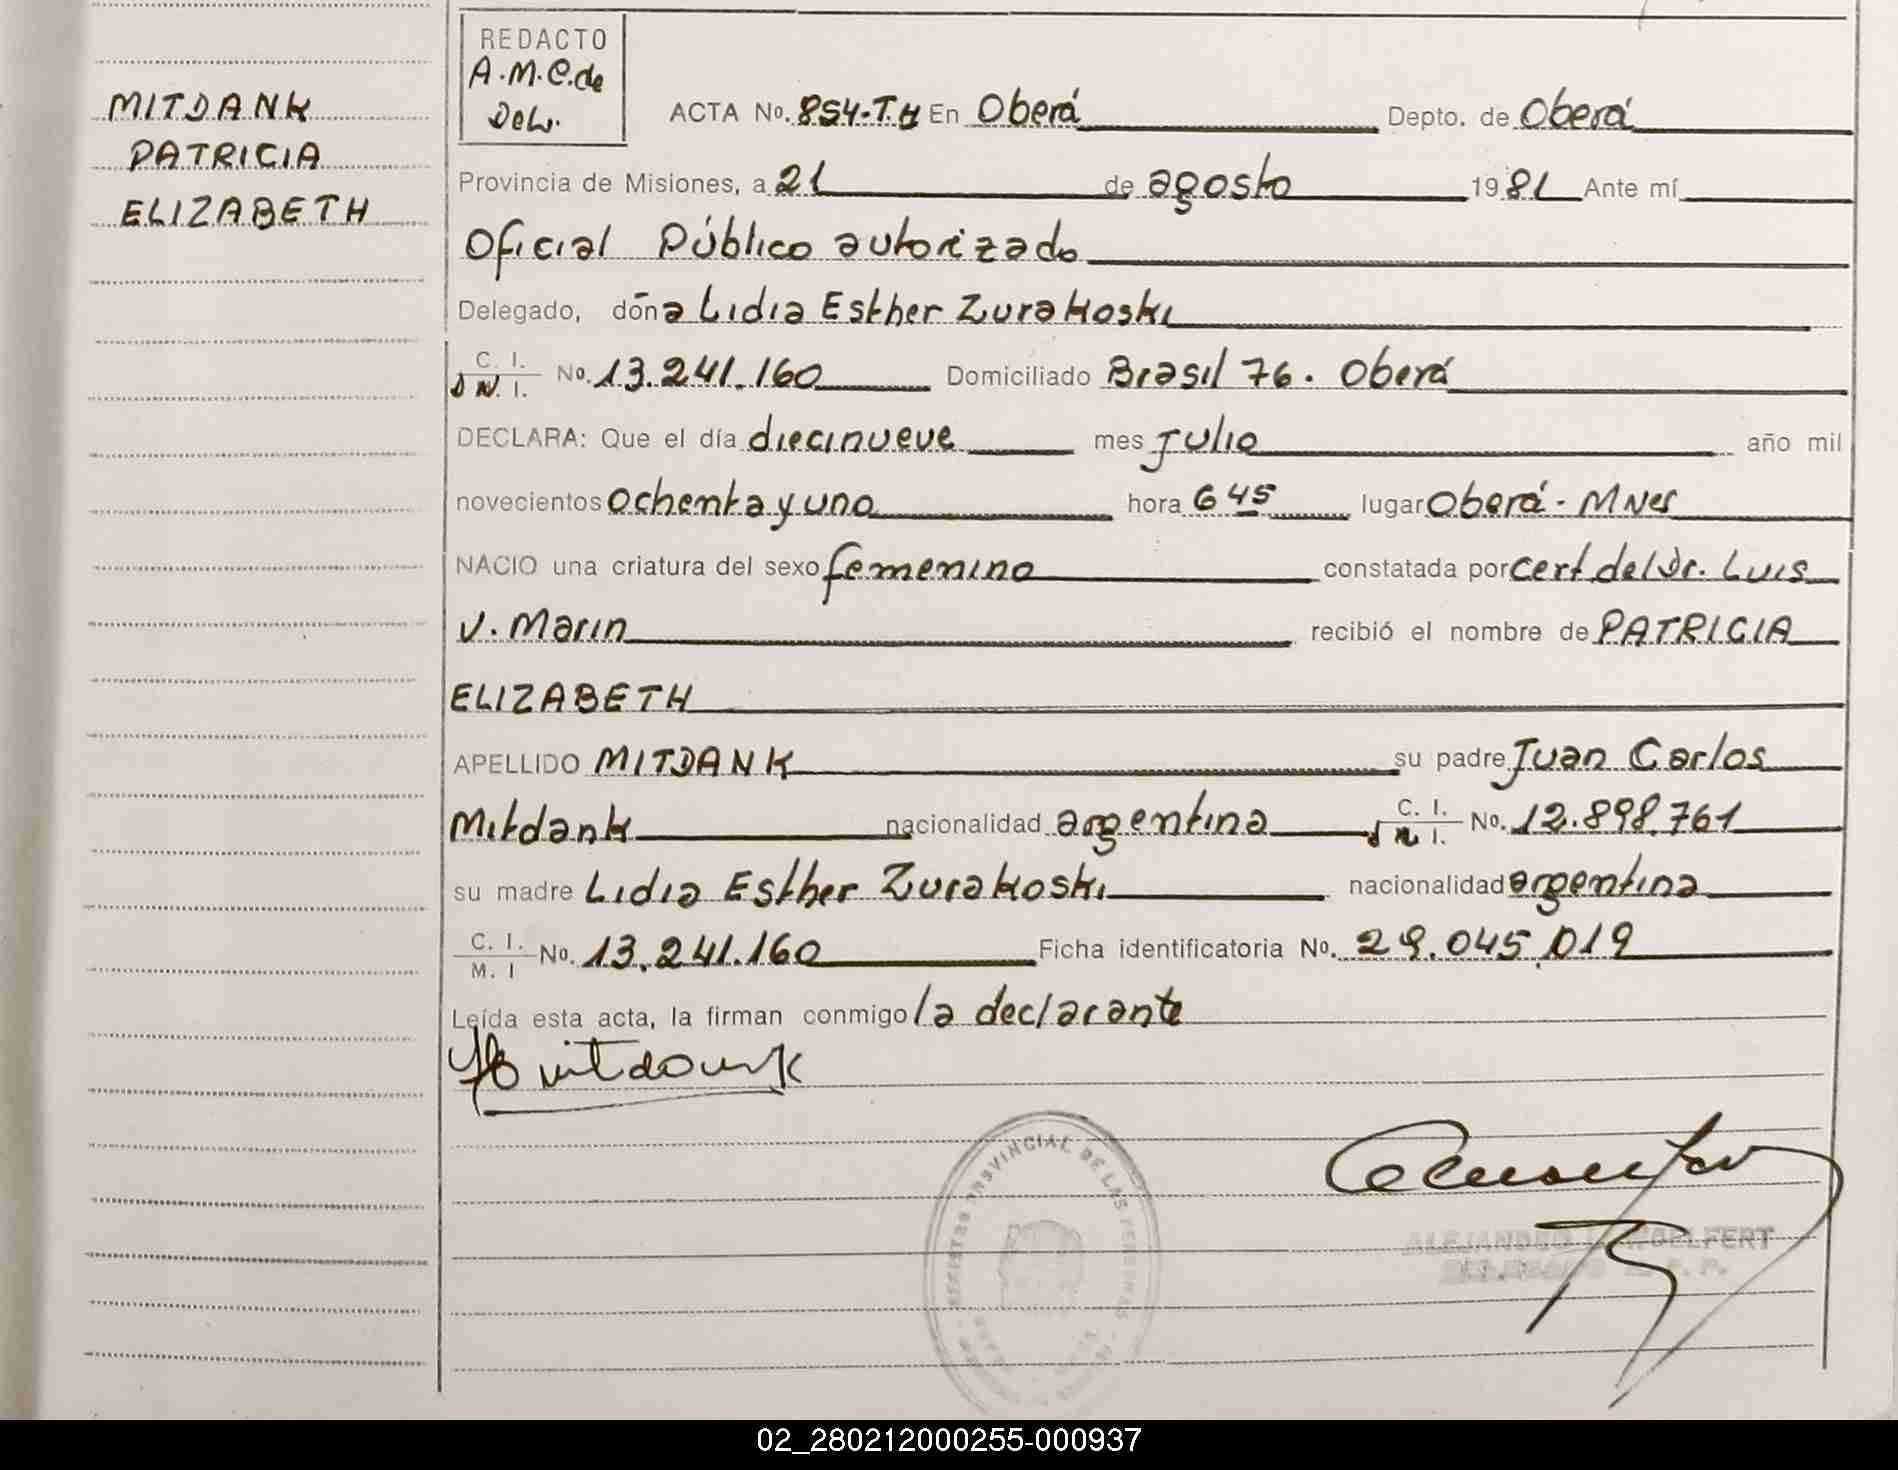 MITDANK
PATRICIA
ELIZABETH
REDACTO
A.M.C.de
Dew.
ACTA No. 854-T.H En Oberá Depto. de Oberá
Provincia de Misiones, a 21 de agosto 1981 Ante mí
Oficial Público autorizado
Delegado, dóna Lidia Esther Zurakoski
C. I.
D N. I. No. 13.241.160 Domiciliado Brasil 76. Oberá
DECLARA: Que el día diecinueve mes Julio año mil
novecientos ochenta y uno hora 6 45 lugar Oberá - MNes
NACIO una criatura del sexo femenino constatada por cert. del Dr. Luis
V. Marin recibió el nombre de PATRICIA
ELIZABETH
APELLIDO MITDANK su padre Juan Carlos
Mitdank nacionalidad argentina C. I. D N I. No. 12.898.761
su madre Lidia Esther Zurakoski nacionalidad argentina
C. I.
M. I No. 13.241.160 Ficha identificatoria No. 29.045.019
Leída esta acta, la firman conmigo la declarante
mitdank
PROVINCIAL DE LAS PERSONAS
ALEJANDRO
02_280212000255-000937